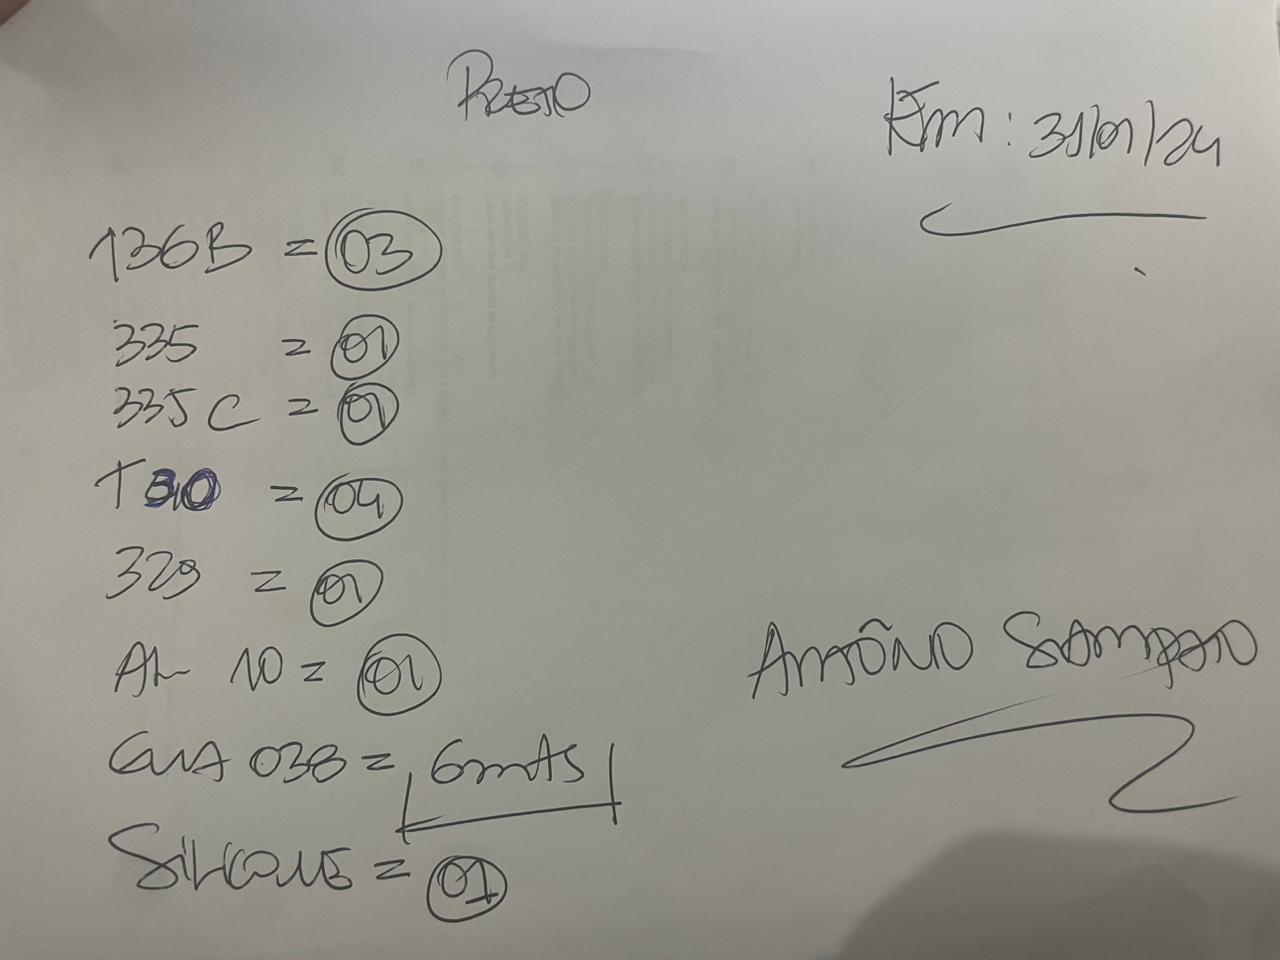 PRETO
Em: 31/01/24
136B = 03
335 = 01
335C = 01
T30 = 04
329 = 01
AL 10 = 01
GUIA 038 = 6mts
SILICONE = 01
ANTÔNIO SAMPAIO